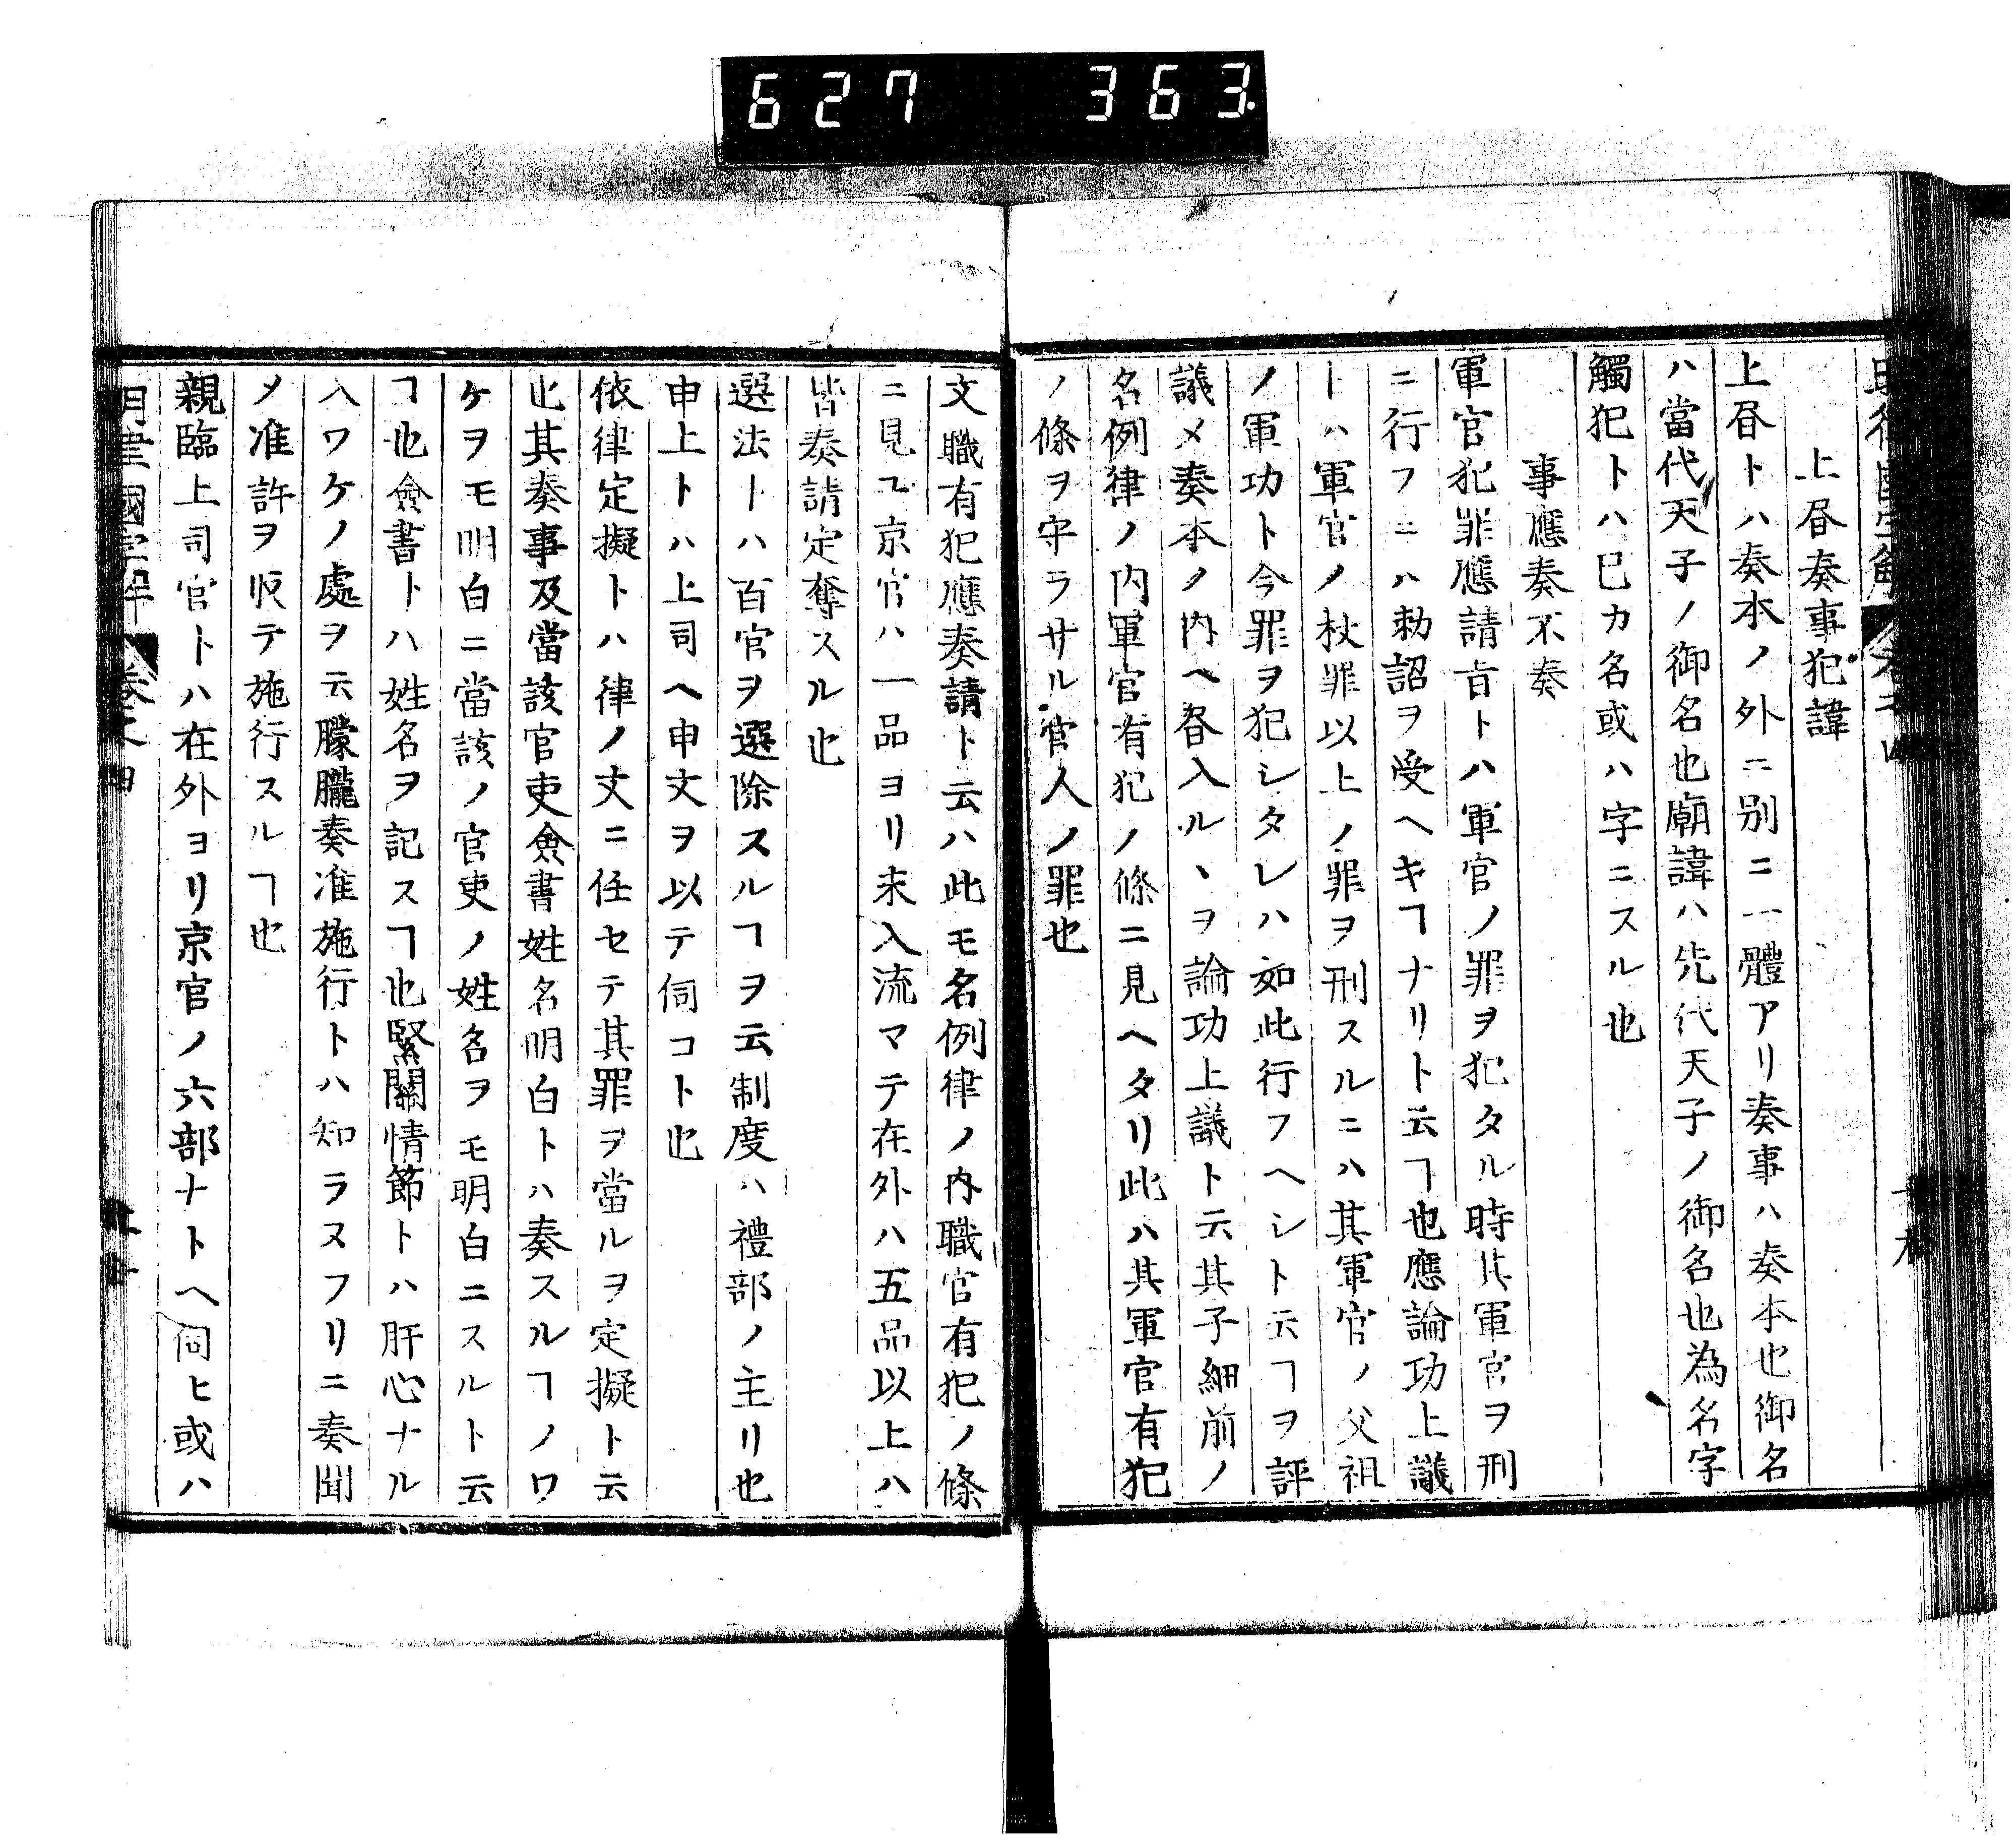 627 363
上昼奏事犯諱
上昼トハ奏本ノ外ニ別ニ一體アリ奏事ハ奏本也御名
ハ當代天子ノ御名也廟諱ハ先代天子ノ御名也為名字
觸犯トハ已カ名或ハ字ニスル也
事應奏不奏
軍官犯罪應請㫖トハ軍官ノ罪ヲ犯タル時其軍官ヲ刑
ニ行フニハ勅詔ヲ受ヘキヿナリト云ヿ也應論功上議
トハ軍官ノ杖罪以上ノ罪ヲ刑スルニハ其軍官ノ父祖
ノ軍功ト今罪ヲ犯シタレハ如此行フヘシト云ヿヲ評
議メ奏本ノ内ヘ昼入ルヽヲ論功上議ト云其子細前ノ
名例律ノ内軍官有犯ノ條ニ見ヘタリ此ハ其軍官有犯
ノ條ヲ守ラサル官人ノ罪也
文職有犯應奏請ト云ハ此モ名例律ノ内職官有犯ノ條
ニ見テ京官ハ一品ヨリ未入流マテ在外ハ五品以上ハ
皆奏請定奪スル也
選法トハ百官ヲ選除スルヿヲ云制度ハ禮部ノ主リ也
申上トハ上司ヘ申文ヲ以テ伺コト也
依律定擬トハ律ノ丈ニ任セテ其罪ヲ當ルヲ定擬ト云
也其奏事及當該官吏僉書姓名明白トハ奏スルヿノワ
ケヲモ明白ニ當該ノ官吏ノ姓名ヲモ明白ニスルト云
ヿ也僉書トハ姓名ヲ記スヿ也緊關情節トハ肝心ナル
入ワケノ處ヲ云朦朧奏准施行トハ知ラヌフリニ奏聞
メ准許ヲ取テ施行スルヿ也
親臨上司官トハ在外ヨリ京官ノ六部ナトヘ伺ヒ或ハ
明律國字解 卷之四